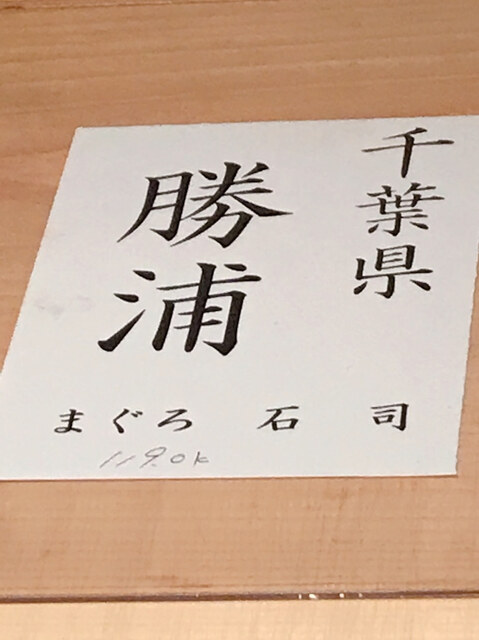 千葉県
勝浦
まぐろ 石司
119.0k